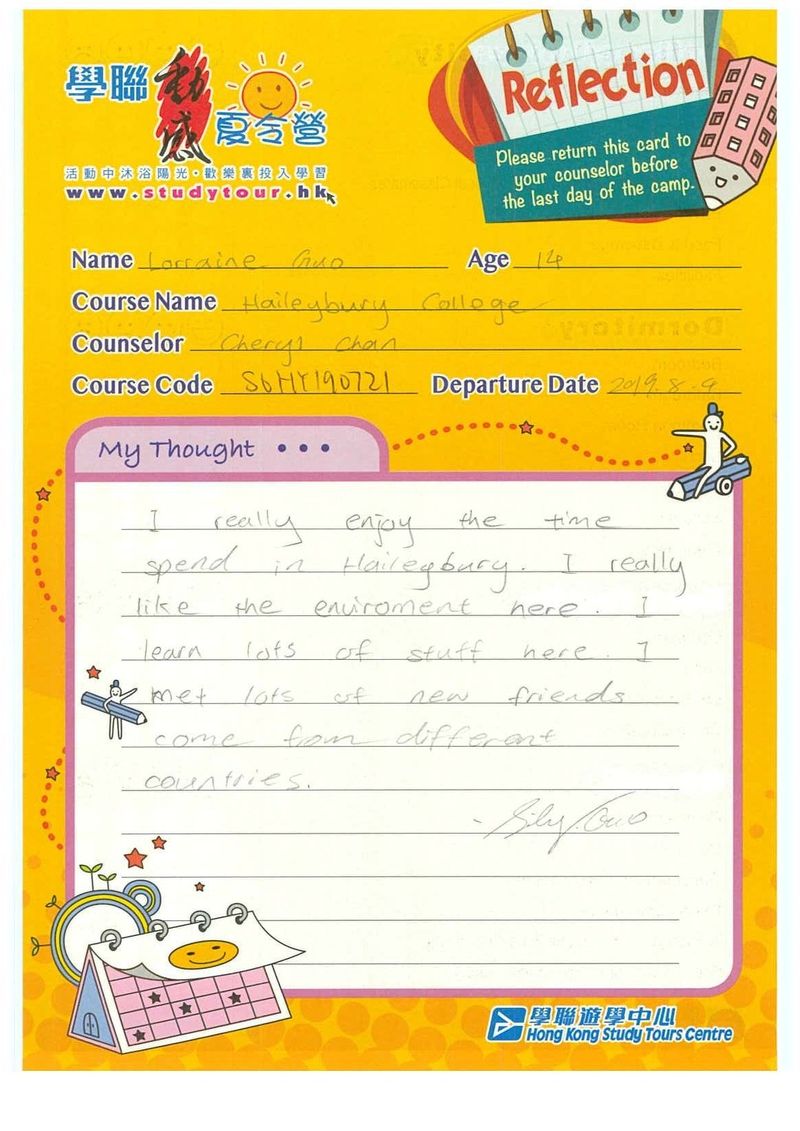 學聯動感夏令營
活動中沐浴陽光•歡樂裏投入學習
www.studytour.hk
Reflection
Please return this card to
your counselor before
the last day of the camp.
Name Lorraine Guo Age 14
Course Name Haileybury College
Counselor Cheryl Chan
Course Code S6HY190721 Departure Date 2019.8.9
My Thought •••
I really enjoy the time
spend in Haileybury. I really
like the enviroment here. I
learn lots of stuff here. I
met lots of new friends
come from different
countries.
Guo
學聯遊學中心
Hong Kong Study Tours Centre